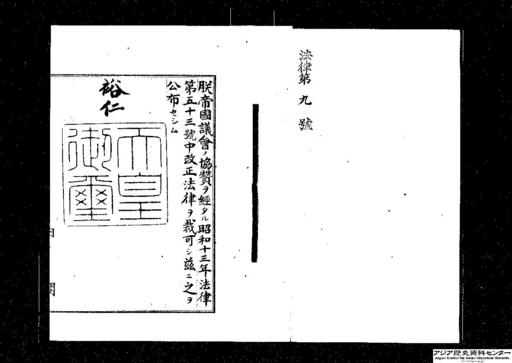 法律第九號
朕帝國議會ノ協贊ヲ經タル昭和十三年法律
第五十三號中改正法律ヲ裁可シ茲ニ之ヲ
公布セシム
裕仁
天皇
御璽
内閣
アジア歴史資料センター
Japan Center for Asian Historical Records